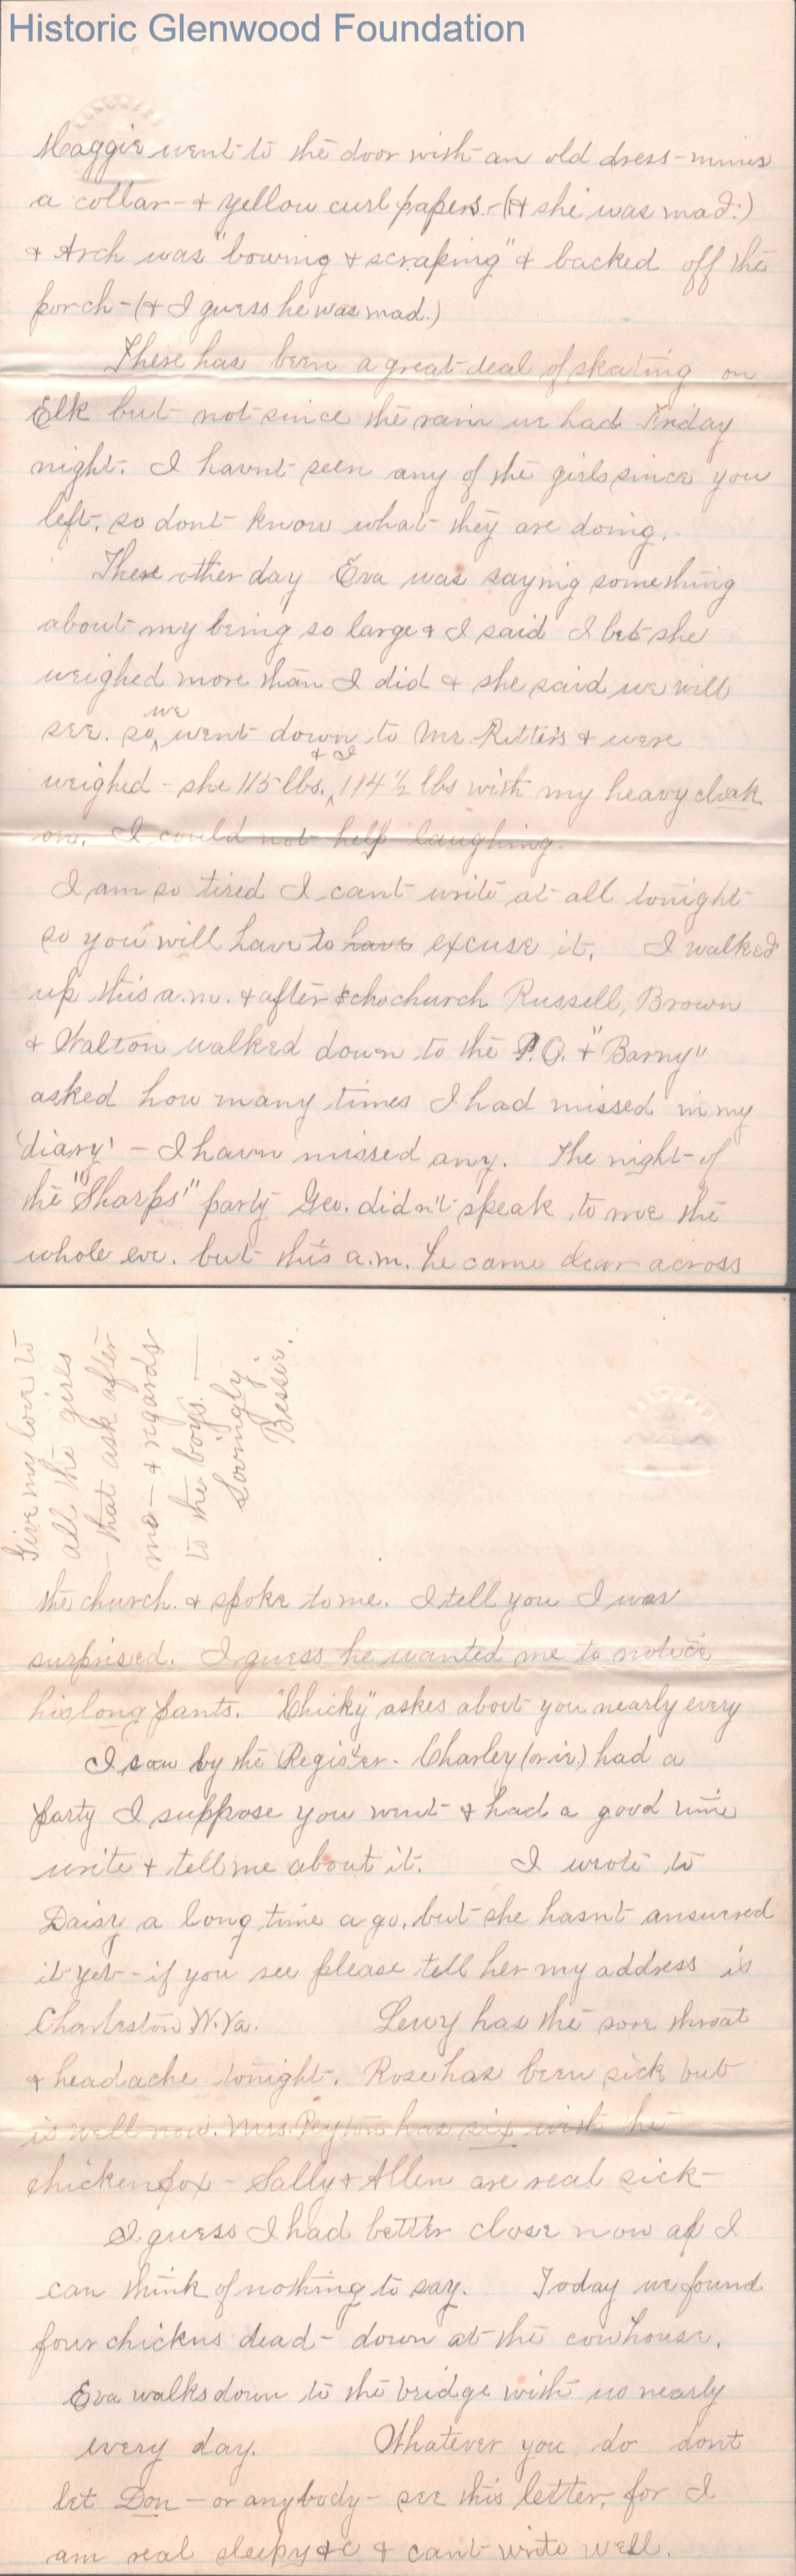 Historic Glenwood Foundation
CONGRESS
Maggie went to the door with an old dress - minus
a collar - & yellow curl papers - (& she was mad.)
& Arch was "bowing & scraping" & backed off the
porch - (& I guess he was mad.)
There has been a great deal of skating on
Elk but not since the rain we had Friday
night. I havnt seen any of the girls since you
left, so dont know what they are doing.
There other day Eva was saying something
about my being so large & I said I bet she
weighed more than I did & she said we will
see. so we went down to Mr. Ritter's & were
weighed - she 115 lbs. & I 114 1/2 lbs with my heavy cloak
on. I could not help laughing.
I am so tired I cant write at all tonight
so you will have to have excuse it. I walked
up this a.m. & after scho church Russell, Brown
& Walton walked down to the P.O. & "Barny"
asked how many times I had missed in my
'diary' - I havn missed any. The night of
the "Sharps'" party Geo. didn't speak to me the
whole eve. but this a.m. he came clear across
Give my love to
all the girls
- that ask after
me - & regards
to the boys. -
Lovingly
Bessie.
the church. & spoke to me. I tell you I was
surprised. I guess he wanted me to notice
his long pants. "Chicky" askes about you nearly every
I saw by the Register - Charley (or ie) had a
party I suppose you went & had a good time
write & tell me about it. I wrote to
Daisy a long time ago, but she hasnt answered
it yet - if you see please tell her my address is
Charleston W.Va. Lewy has the sore throat
& headache tonight. Rose has been sick but
is well now. Mrs. Peyton has six with the
chicken pox - Sally & Allen are real sick -
I guess I had better close now as I
can think of nothing to say. Today we found
four chickns dead - down at the cowhouse.
Eva walks down to the bridge with us nearly
every day. Whatever you do dont
let Don - or anybody - see this letter, for I
am real sleepy &c & cant write well.